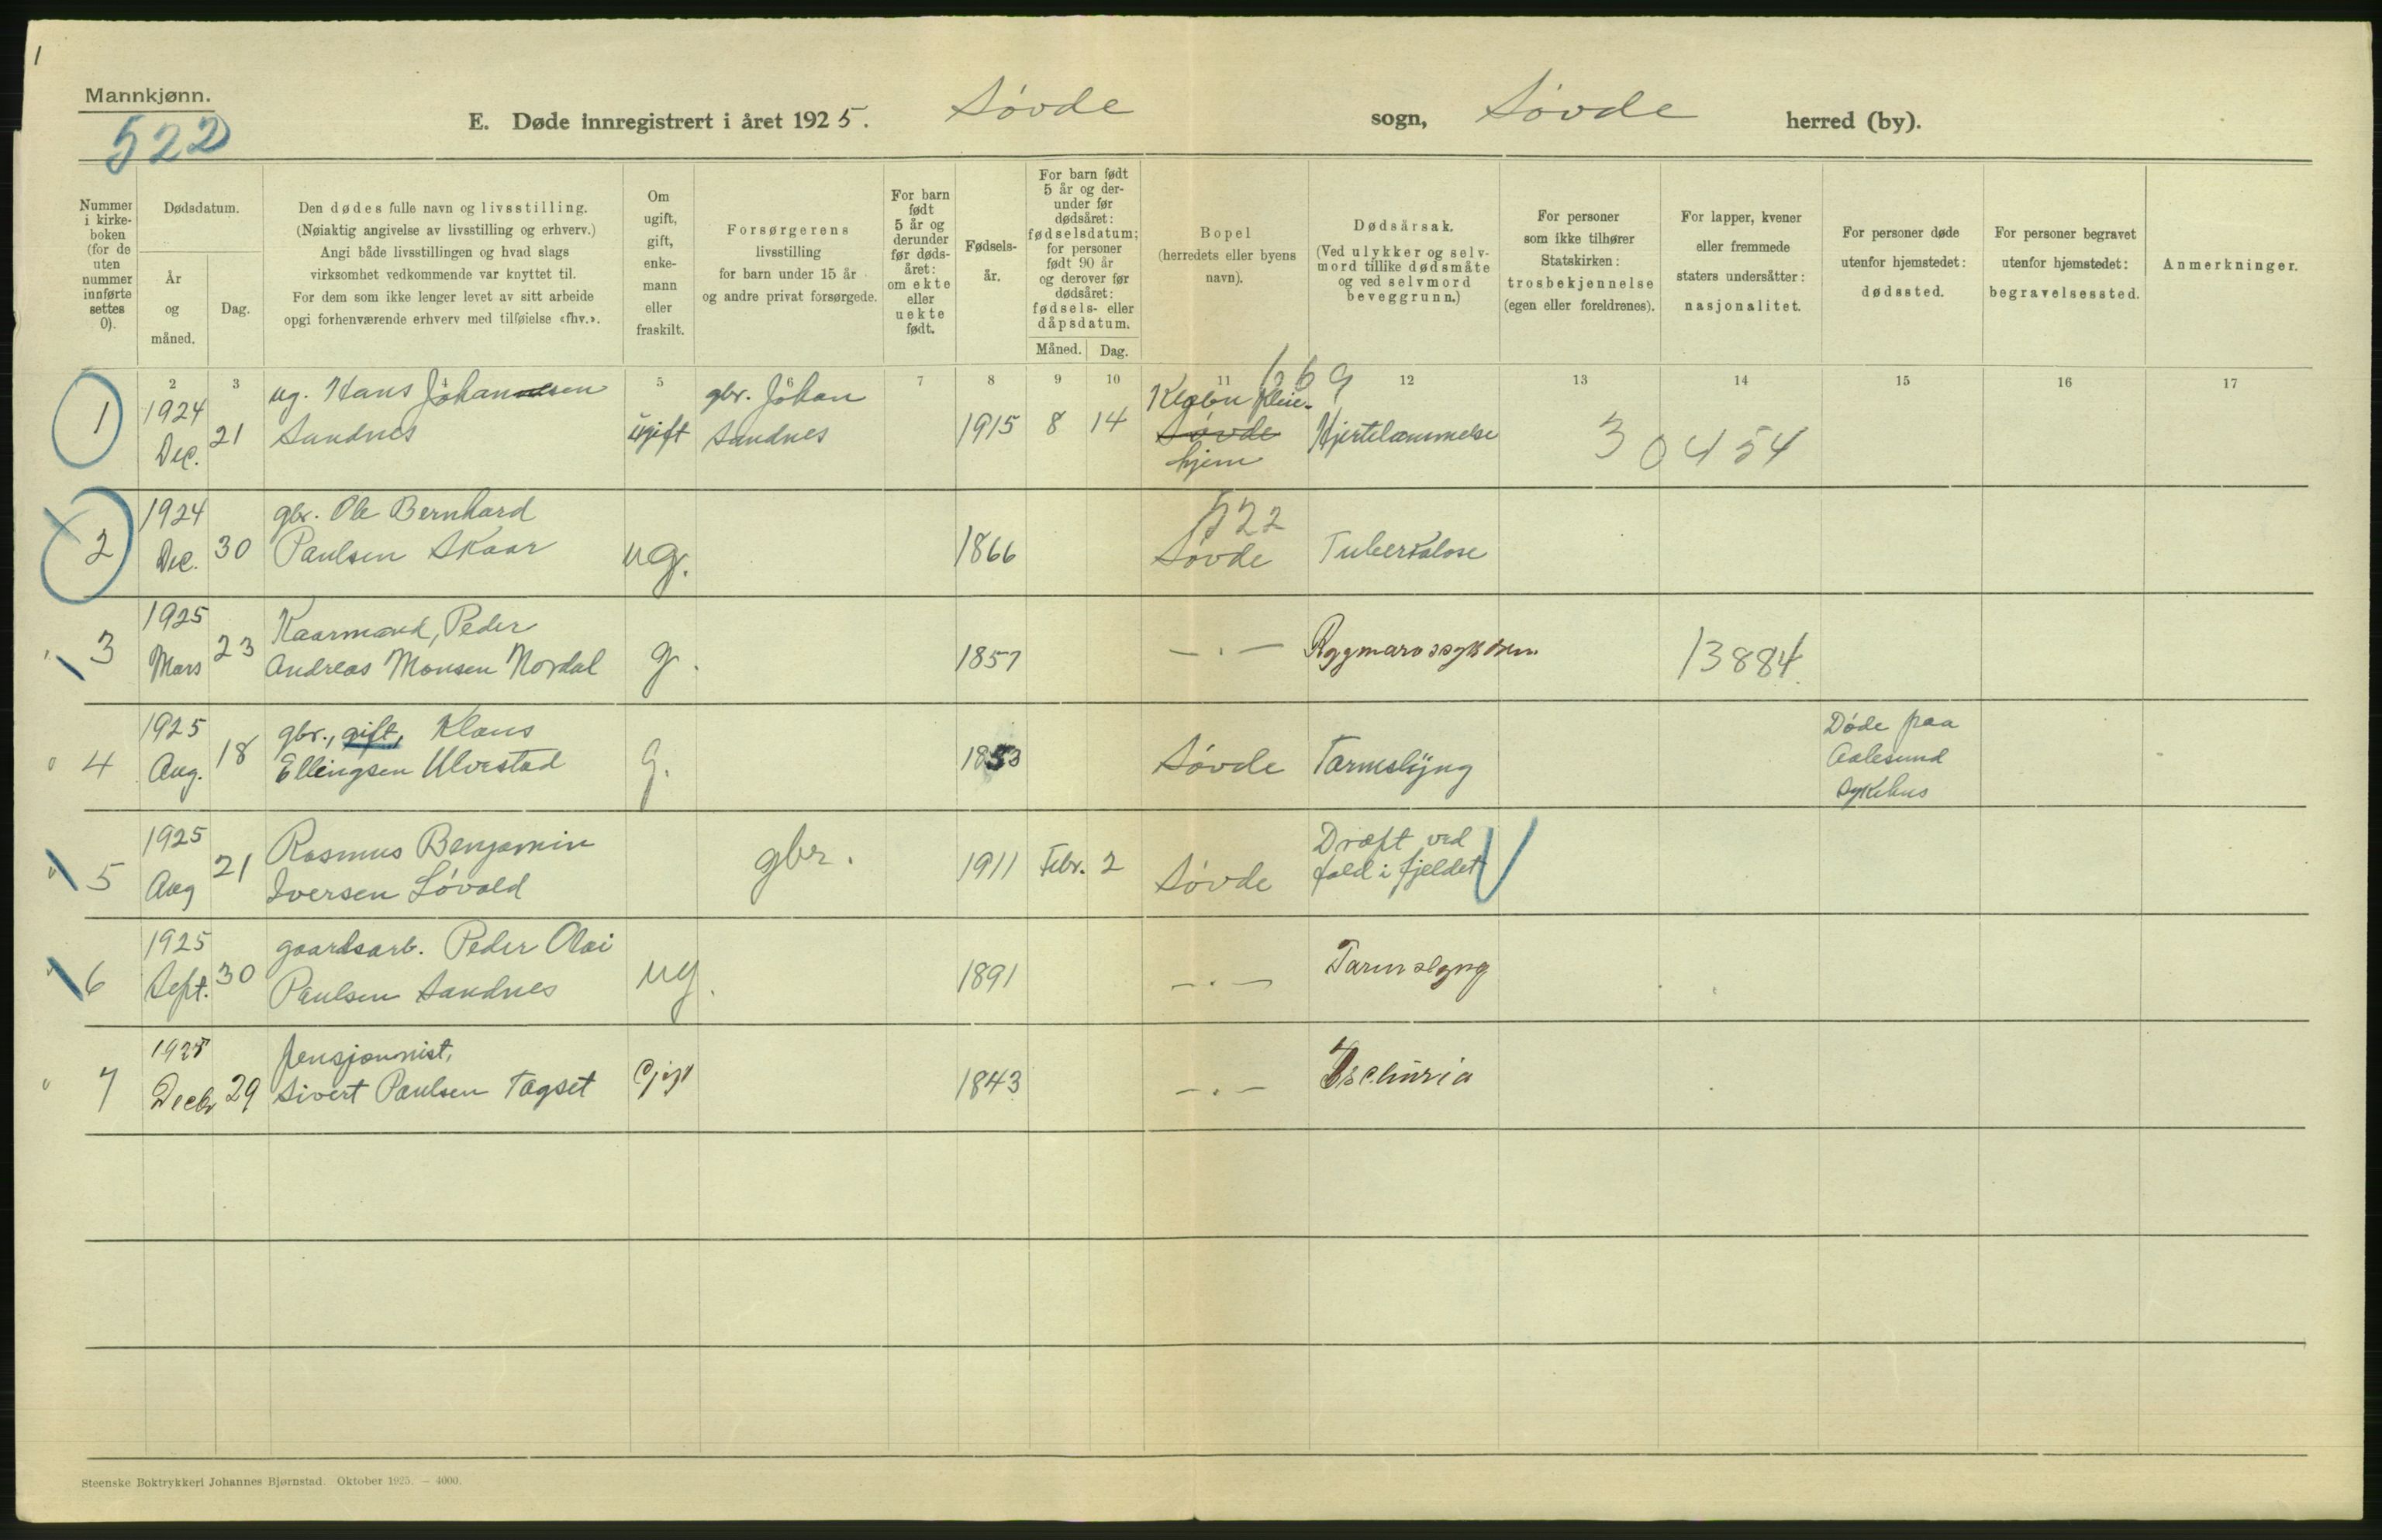 1
Mannkjønn.
522
E. Døde innregistrert i året 1925. Søvde sogn, Søvde herred (by).
Nummer
i kirke-
boken
(for de
uten
nummer
innførte
settes
0).
Dødsdatum.
År
og
måned.
Dag.
Den dødes fulle navn og livsstilling.
(Nøiaktig angivelse av livsstilling og erhverv.)
Angi både livsstillingen og hvad slags
virksomhet vedkommende var knyttet til.
For dem som ikke lenger levet av sitt arbeide
opgi forhenværende erhverv med tilføielse «fhv.».
Om
ugift,
gift,
enke-
mann
eller
fraskilt.
Forsørgerens
livsstilling
for barn under 15 år
og andre privat forsørgede.
For barn
født
5 år og
derunder
før døds-
året:
om ekte
eller
uekte
født.
Fødsels-
år.
For barn født
5 år og der-
under før
dødsåret:
fødselsdatum;
for personer
født 90 år
og derover før
dødsåret:
fødsels- eller
dåpsdatum.
Måned. Dag.
Bopel
(herredets eller byens
navn).
Dødsårsak.
(Ved ulykker og selv-
mord tillike dødsmåte
og ved selvmord
beveggrunn.)
For personer
som ikke tilhører
Statskirken:
trosbekjennelse
(egen eller foreldrenes).
For lapper, kvener
eller fremmede
staters undersåtter:
nasjonalitet.
For personer døde
utenfor hjemstedet:
dødssted.
For personer begravet
utenfor hjemstedet:
begravelsessted.
Anmerkninger.
2 3 4 5 6 7 8 9 10 11 12 13 14 15 16 17
1
1924
Dec.
21
ug. Hans Johannesen
Sandnes
ugift
gbr. Johan
Sandnes
1915 8 14
1669
Klæbu pleie-
Søvde
hjem
Hjertelammelse
30454
2
1924
Dec.
30
gbr. Ole Bernhard
Paulsen Skaar
ug.
1866
522
Søvde
Tuberkulose
3
1925
Mars
23
Kaarmand, Peder
Andreas Monsen Nordal
g.
1857
— . —
Rygmarvssykdom
13884
4
1925
Aug.
18
gbr., gift, Klaus
Ellingsen Ulvestad
g.
1853
Søvde
Tarmslyng
Døde paa
Aalesund
sykehus
5
1925
Aug
21
Rasmus Benjamin
Iversen Løvold
gbr.
1911 Febr. 2
Søvde
Dræpt ved
fald i fjeldet
6
1925
Sept.
30
gaardsarb. Peder Olai
Paulsen Sandnes
ug.
1891
— . —
Tarmslyng
7
1925
Decbr
29
pensjonnist,
Sivert Paulsen Tagset
Gift
1843
— . —
Ischuria
Steenske Boktrykkeri Johannes Bjørnstad. Oktober 1925. — 4000.